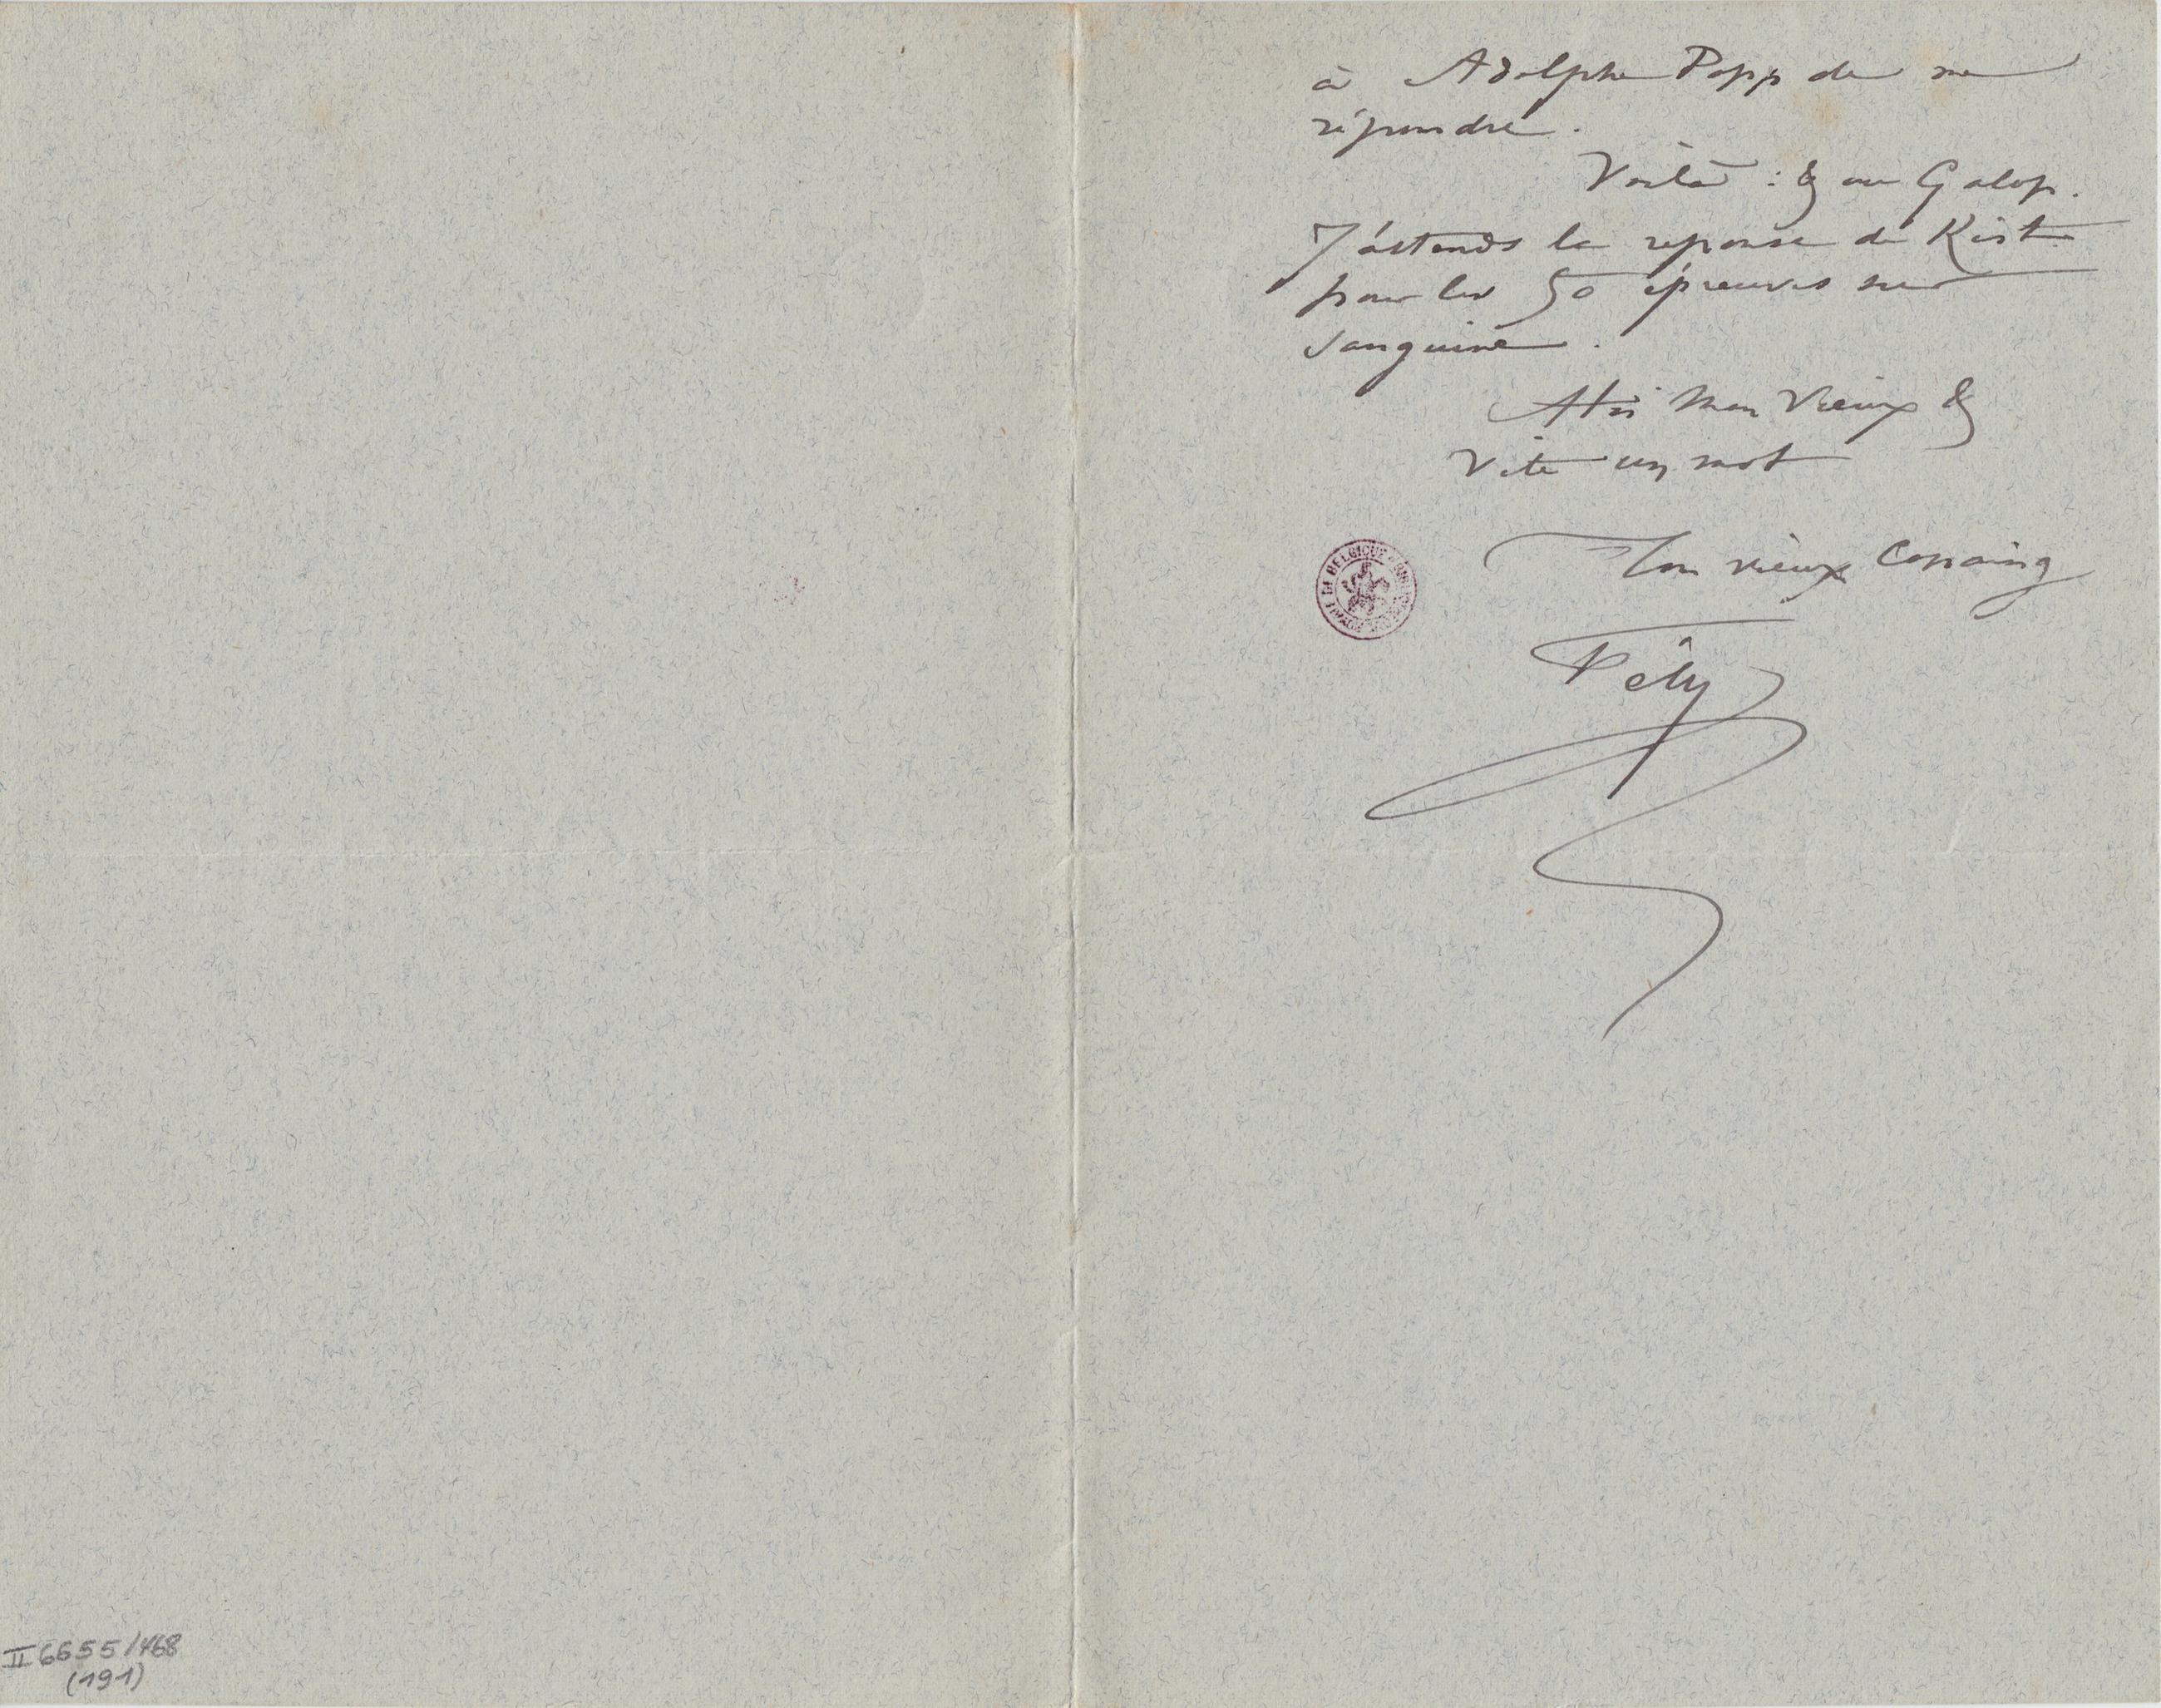 à Adolphe Popp de me
répondre.
Voilà : & au Galop.
J'attends la reponse de Kist
pour les 50 épreuves sur
sanguine.
A toi mon Vieux &
Vite un mot
Ton vieux Copaing
Fély
II 6655/468
(191)